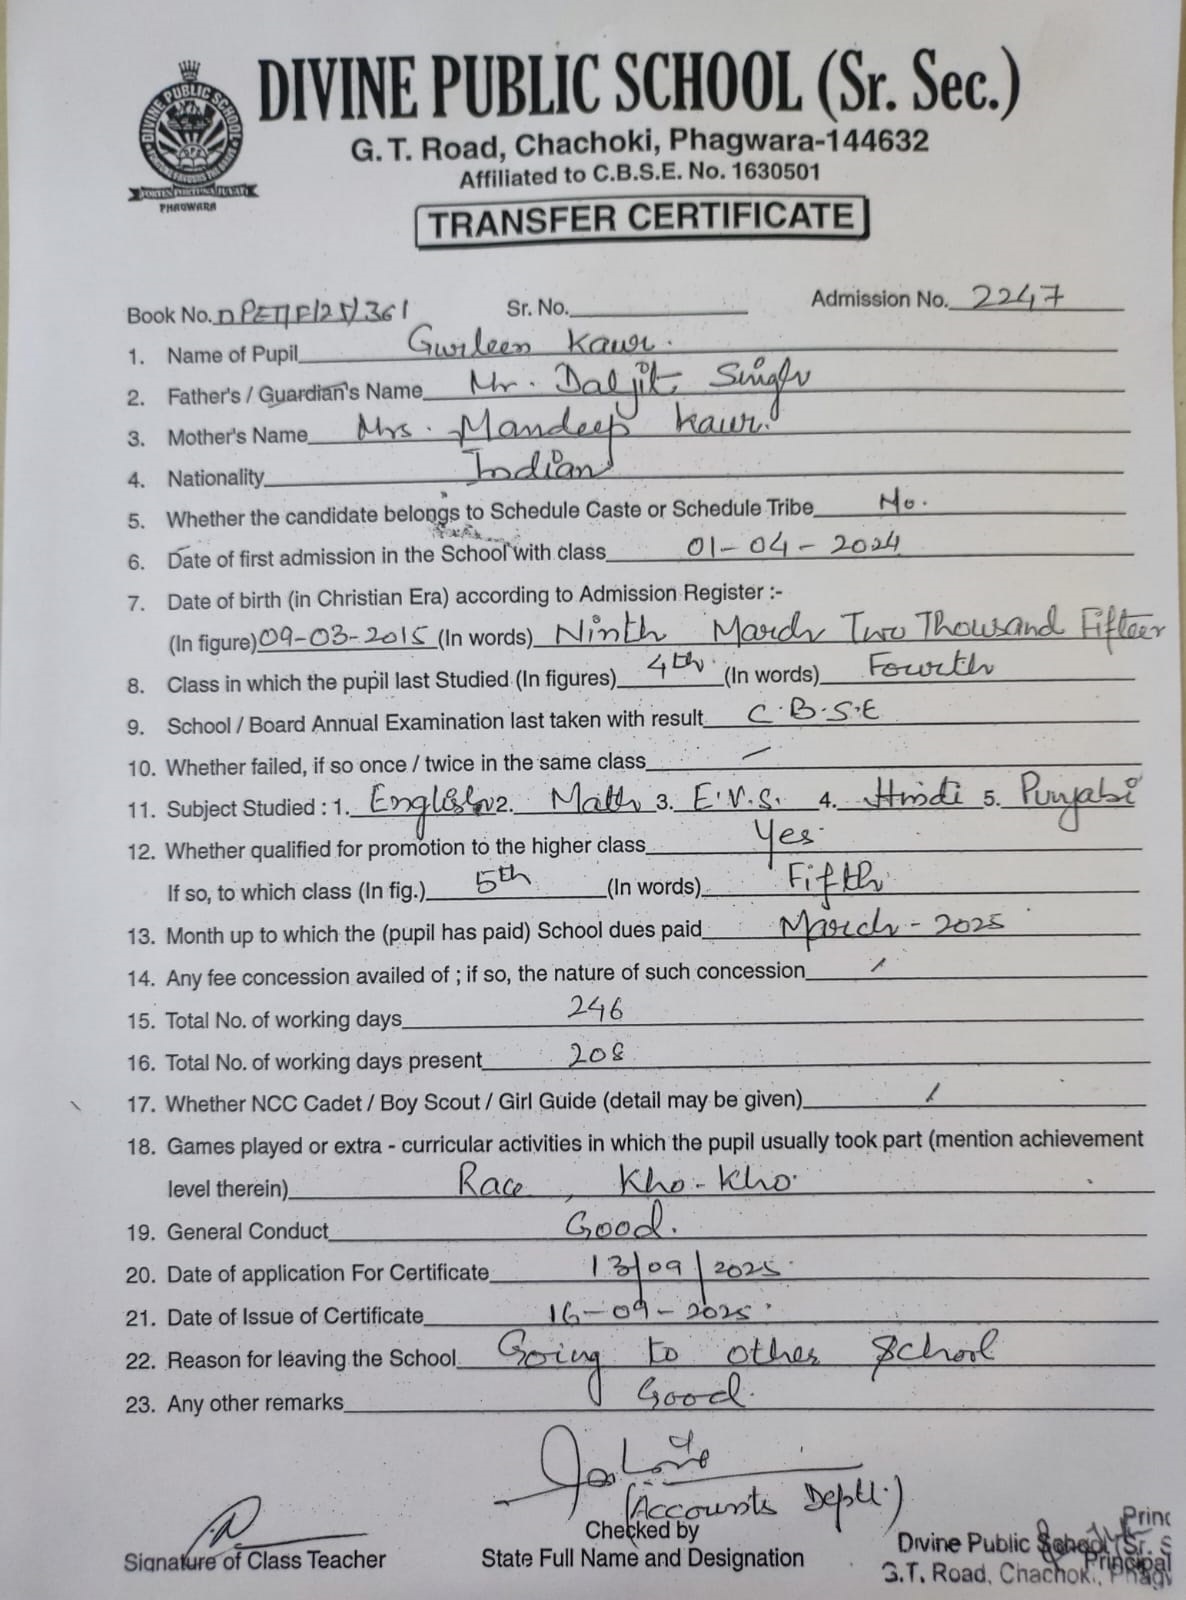 DIVINE PUBLIC SCHOOL (Sr. Sec.)
DIVINE PUBLIC SCHOOL
PHAGWARA
G. T. Road, Chachoki, Phagwara-144632
Affiliated to C.B.S.E. No. 1630501
TRANSFER CERTIFICATE
Book No. Sr. No. Admission No. 2247
1. Name of Pupil Gurleen Kaur.
2. Father's / Guardian's Name Mr. Daljit Singh
3. Mother's Name Mrs. Mandeep Kaur.
4. Nationality Indian
5. Whether the candidate belongs to Schedule Caste or Schedule Tribe No.
6. Date of first admission in the School with class 01-04-2024
7. Date of birth (in Christian Era) according to Admission Register :-
(In figure) 09-03-2015 (In words) Ninth March Two Thousand Fifteen
8. Class in which the pupil last Studied (In figures) 4th (In words) Fourth
9. School / Board Annual Examination last taken with result C.B.S.E
10. Whether failed, if so once / twice in the same class
11. Subject Studied : 1. English 2. Math 3. E.V.S. 4. Hindi 5. Punjabi
12. Whether qualified for promotion to the higher class Yes
If so, to which class (In fig.) 5th (In words) Fifth
13. Month up to which the (pupil has paid) School dues paid March - 2025
14. Any fee concession availed of ; if so, the nature of such concession
15. Total No. of working days 246
16. Total No. of working days present 208
17. Whether NCC Cadet / Boy Scout / Girl Guide (detail may be given)
18. Games played or extra - curricular activities in which the pupil usually took part (mention achievement
level therein) Race, Kho-Kho.
19. General Conduct Good.
20. Date of application For Certificate 13/09/2025
21. Date of Issue of Certificate 16-09-2025
22. Reason for leaving the School Going to other School
23. Any other remarks Good.
(Accounts Deptt.)
Checked by
Signature of Class Teacher State Full Name and Designation
Principal
Divine Public School (Sr. S
G.T. Road, Chachoki,